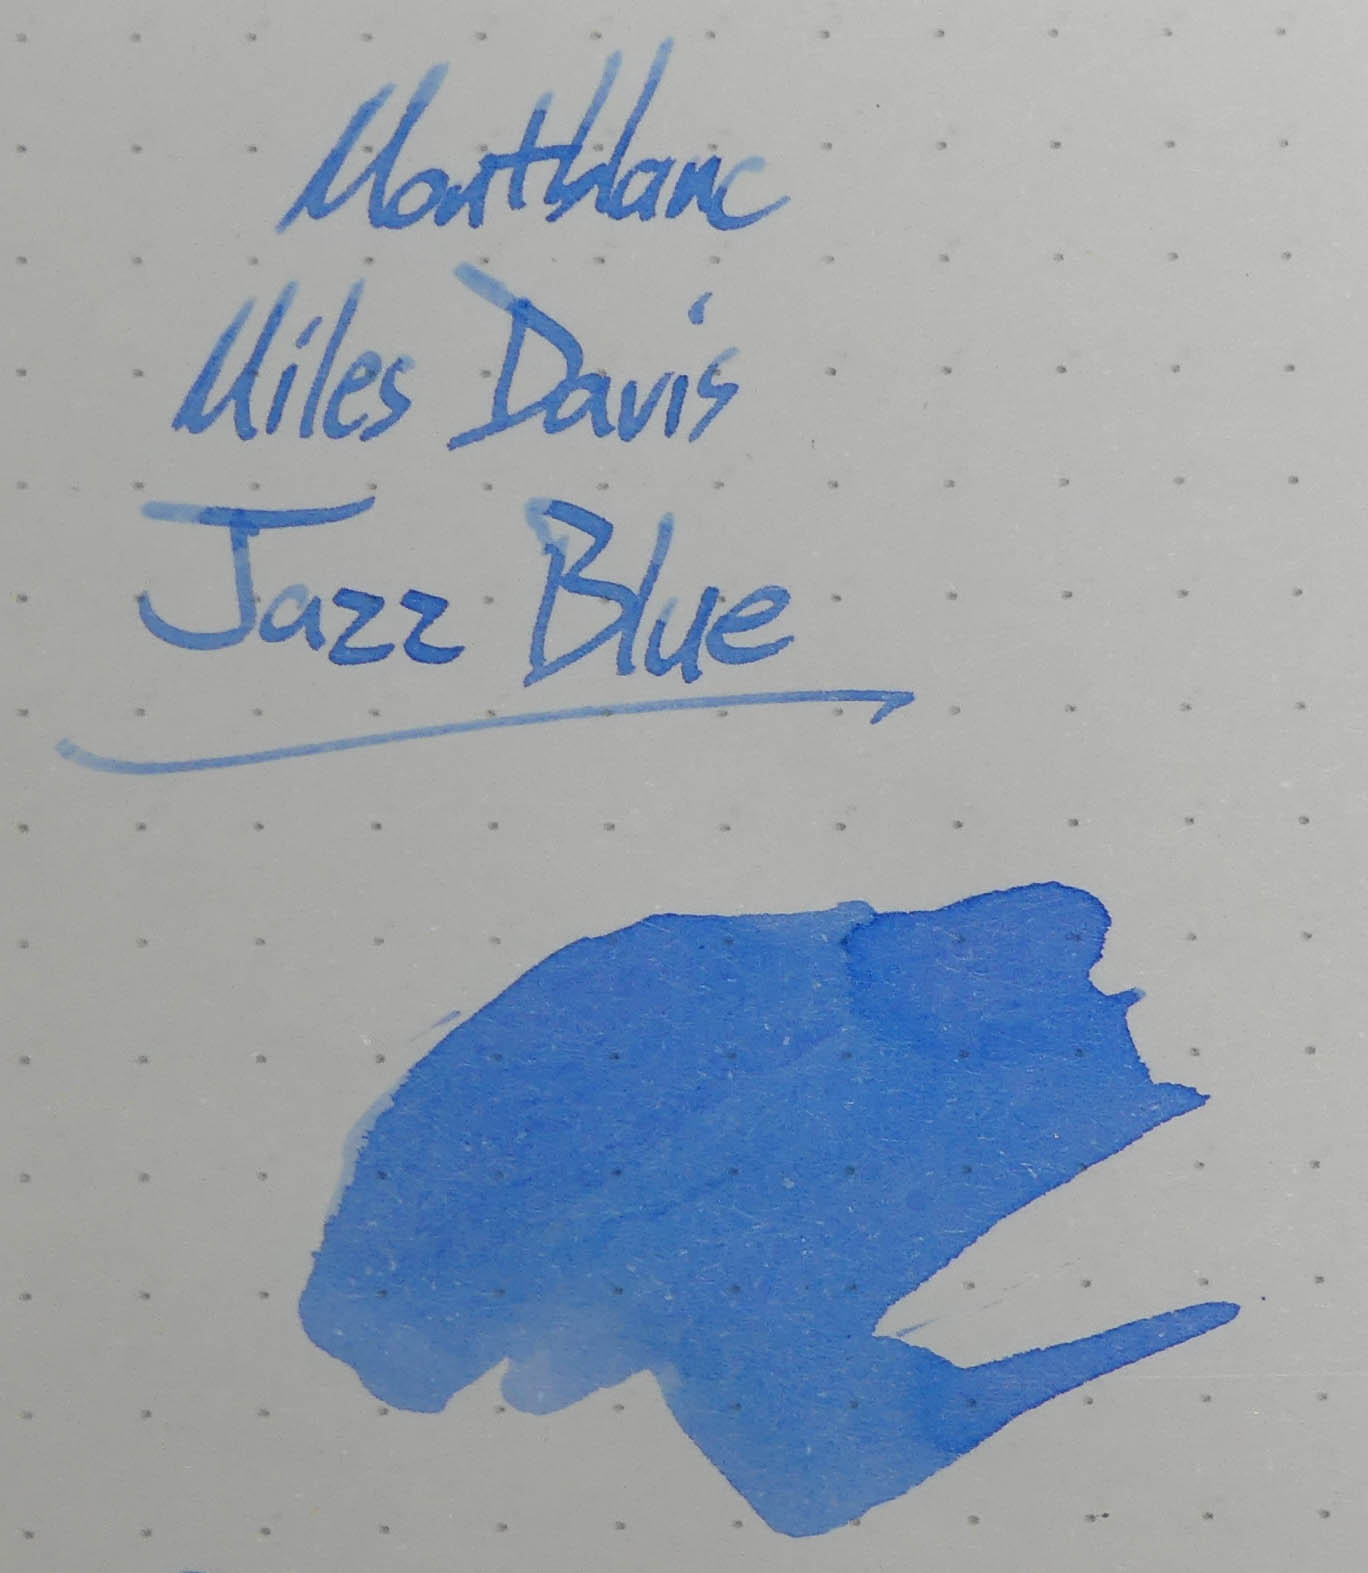 Montblanc
Miles Davis
Jazz Blue